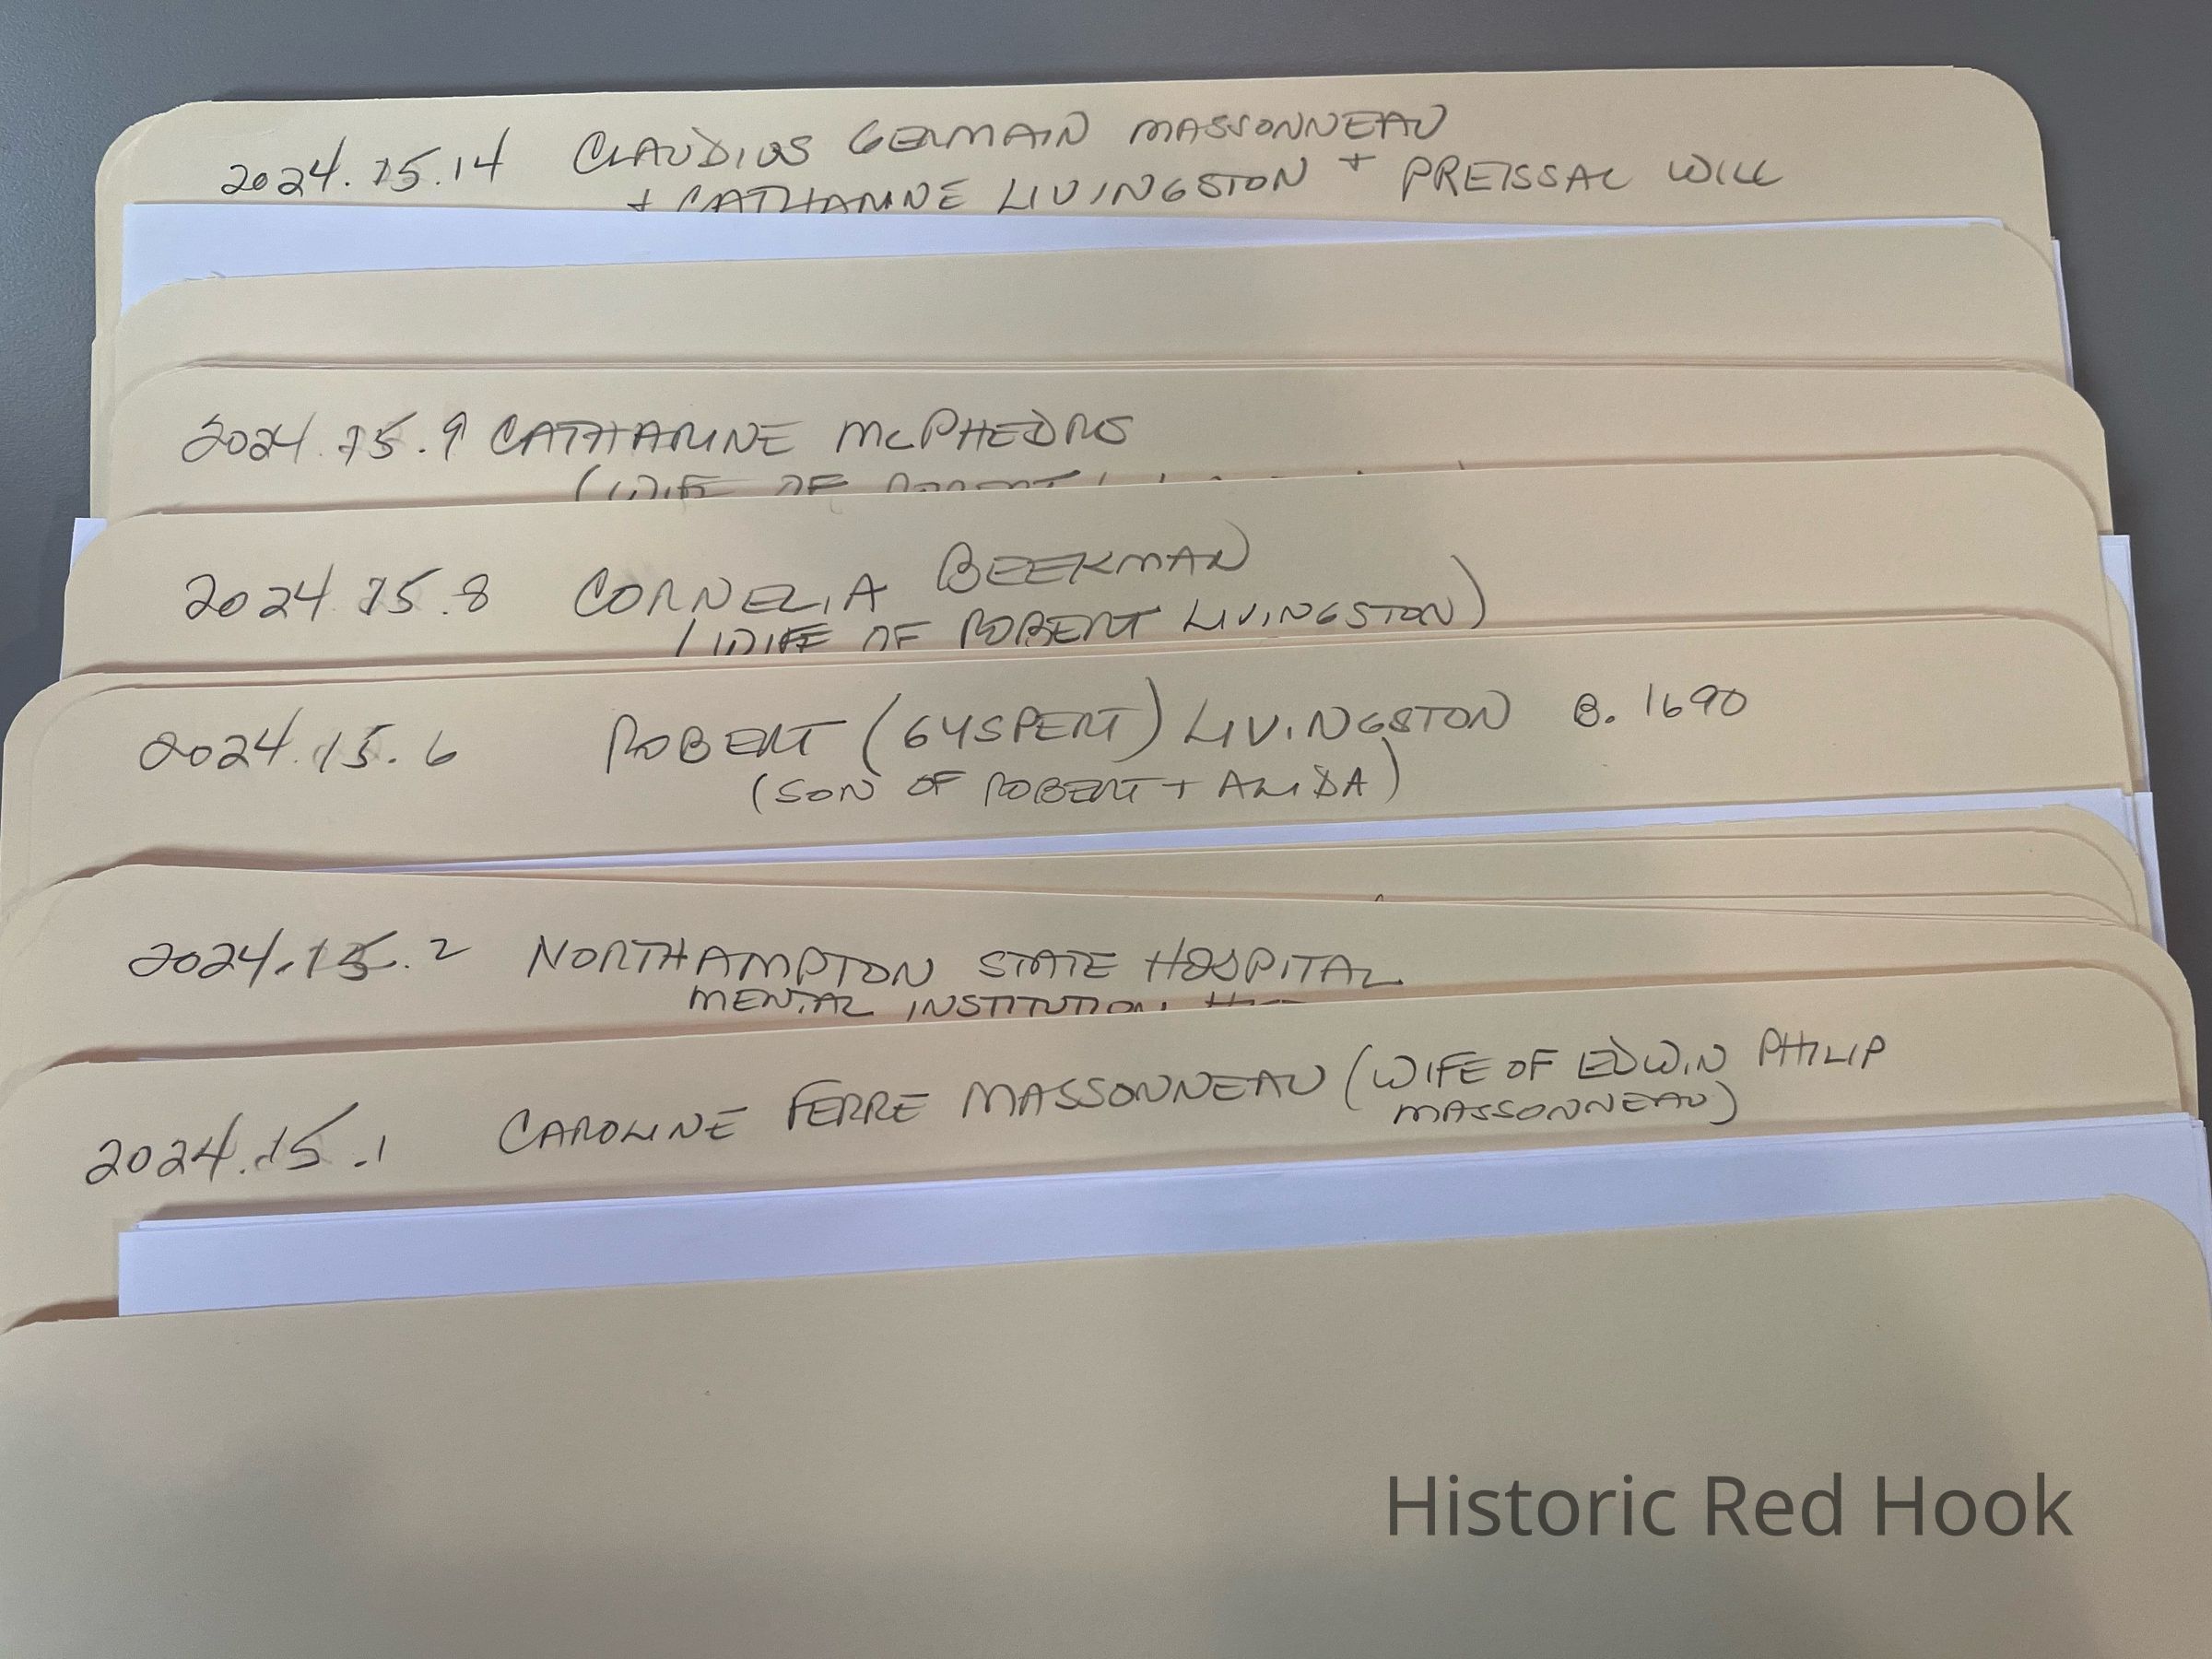 2024.15.14 CLAUDIUS GERMAIN MASSONNEAU
+ CATHARINE LIVINGSTON + PREISSAC WILL
2024.15.9 CATHARINE McPHEDRIS
(WIFE OF ROBERT
2024.15.8 CORNELIA BEEKMAN
(WIFE OF ROBERT LIVINGSTON)
2024.15.6 ROBERT (GYSPERT) LIVINGSTON B. 1690
(SON OF ROBERT + ALIDA)
2024.15.2 NORTHAMPTON STATE HOSPITAL
MENTAL INSTITUTION
2024.15.1 CAROLINE FERRE MASSONNEAU (WIFE OF EDWIN PHILIP
MASSONNEAU)
Historic Red Hook